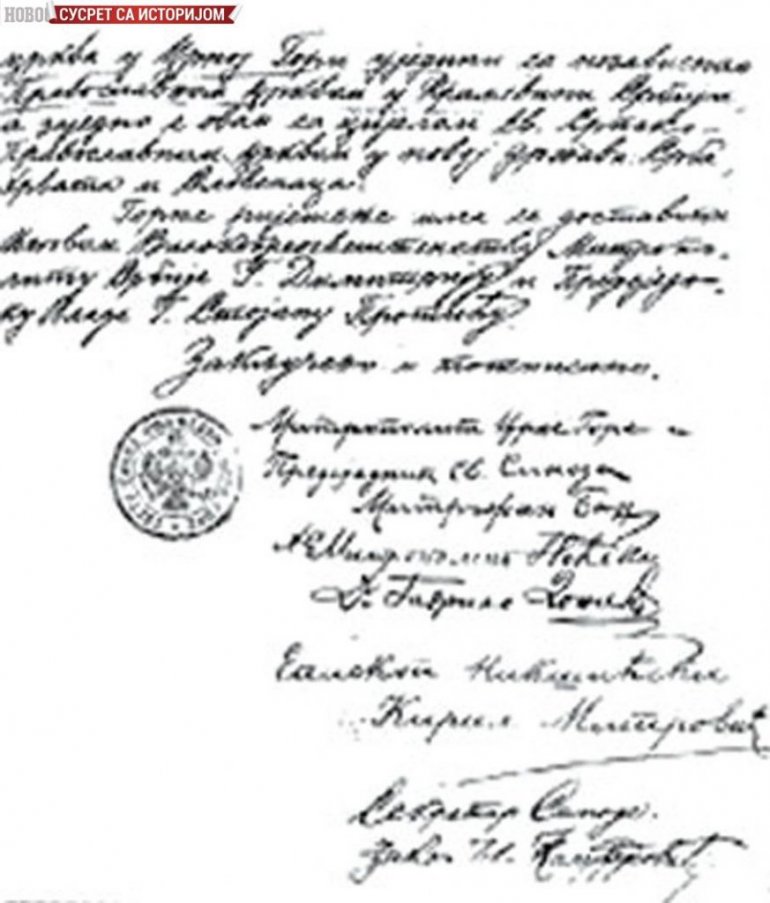 НОВО
СУСРЕТ СА ИСТОРИЈОМ
црква у Црној Гори уједини са независном
Православном црквом у Краљевини Србији,
а заједно с овом са цијелом Св. Српско-
Православном црквом у новој држави Срба,
Хрвата и Словенаца.
Горње ријешење има се доставити
Његовом Високопреосвештенству Митропо-
литу Србије Г. Димитрију и Предсједни-
ку Владе Г. Стојану Протићу.
Закључено и потписано.
Митрополит Црне Горе и
Предсједник Св. Синода
Митрофан Бан
Митрополит Пећки
Др Гаврило Дожић
Епископ Никшићки
Кирил Митровић
Секретар Синода.